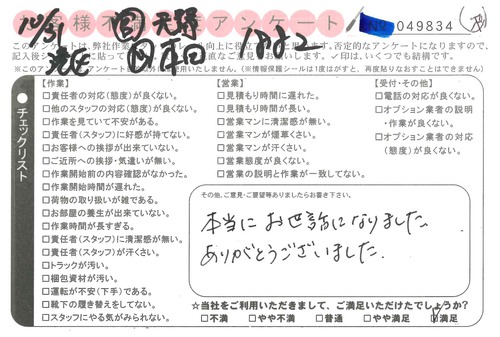 お客様不満足度アンケート
No 049834
10/31
このアンケートは、弊社作業
向上に役立
否定的なアンケートになりますので、
記入後シ
に貼って
直なご意見
い。✓印は、いくつでも結構です。
【作業】
□責任者の対応(態度)が良くない。
□他のスタッフの対応(態度)が良くない。
□作業を見ていて不安がある。
□責任者(スタッフ)に好感が持てない。
□お客様への挨拶が出来ていない。
□ご近所への挨拶・気遣いが無い。
□作業開始前の内容確認がなかった。
□作業開始時間が遅れた。
□荷物の取り扱いが雑である。
□お部屋の養生が出来ていない。
□作業時間が長すぎる。
□責任者(スタッフ)に清潔感が無い。
□責任者(スタッフ)が汗くさい。
□トラックが汚い。
□梱包資材が汚い。
□運転が不安(下手)である。
□靴下の履き替えをしてない。
□スタッフにやる気がみられない。
【営業】
□見積もり時間に遅れた。
□見積もり時間が長い。
□営業マンに清潔感が無い。
□営業マンが煙草くさい。
□営業マンが汗くさい。
□営業態度が良くない。
□営業の説明と作業が一致してない。
【受付・その他】
□電話の対応が良くない。
□オプション業者の説明
・作業が良くない。
□オプション業者の対応
(態度)が良くない。
チェックリスト
その他、ご意見・ご要望等ありましたらお書き下さい。
本当にお世話になりました。
ありがとうございました。
☆当社をご利用いただきまして、ご満足いただけたでしょうか?
□不満 □やや不満 □普通 □やや満足 ☑満足